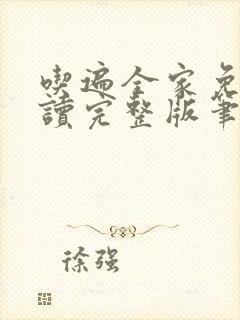 喫遍全家免
讀完整版筆
徐强